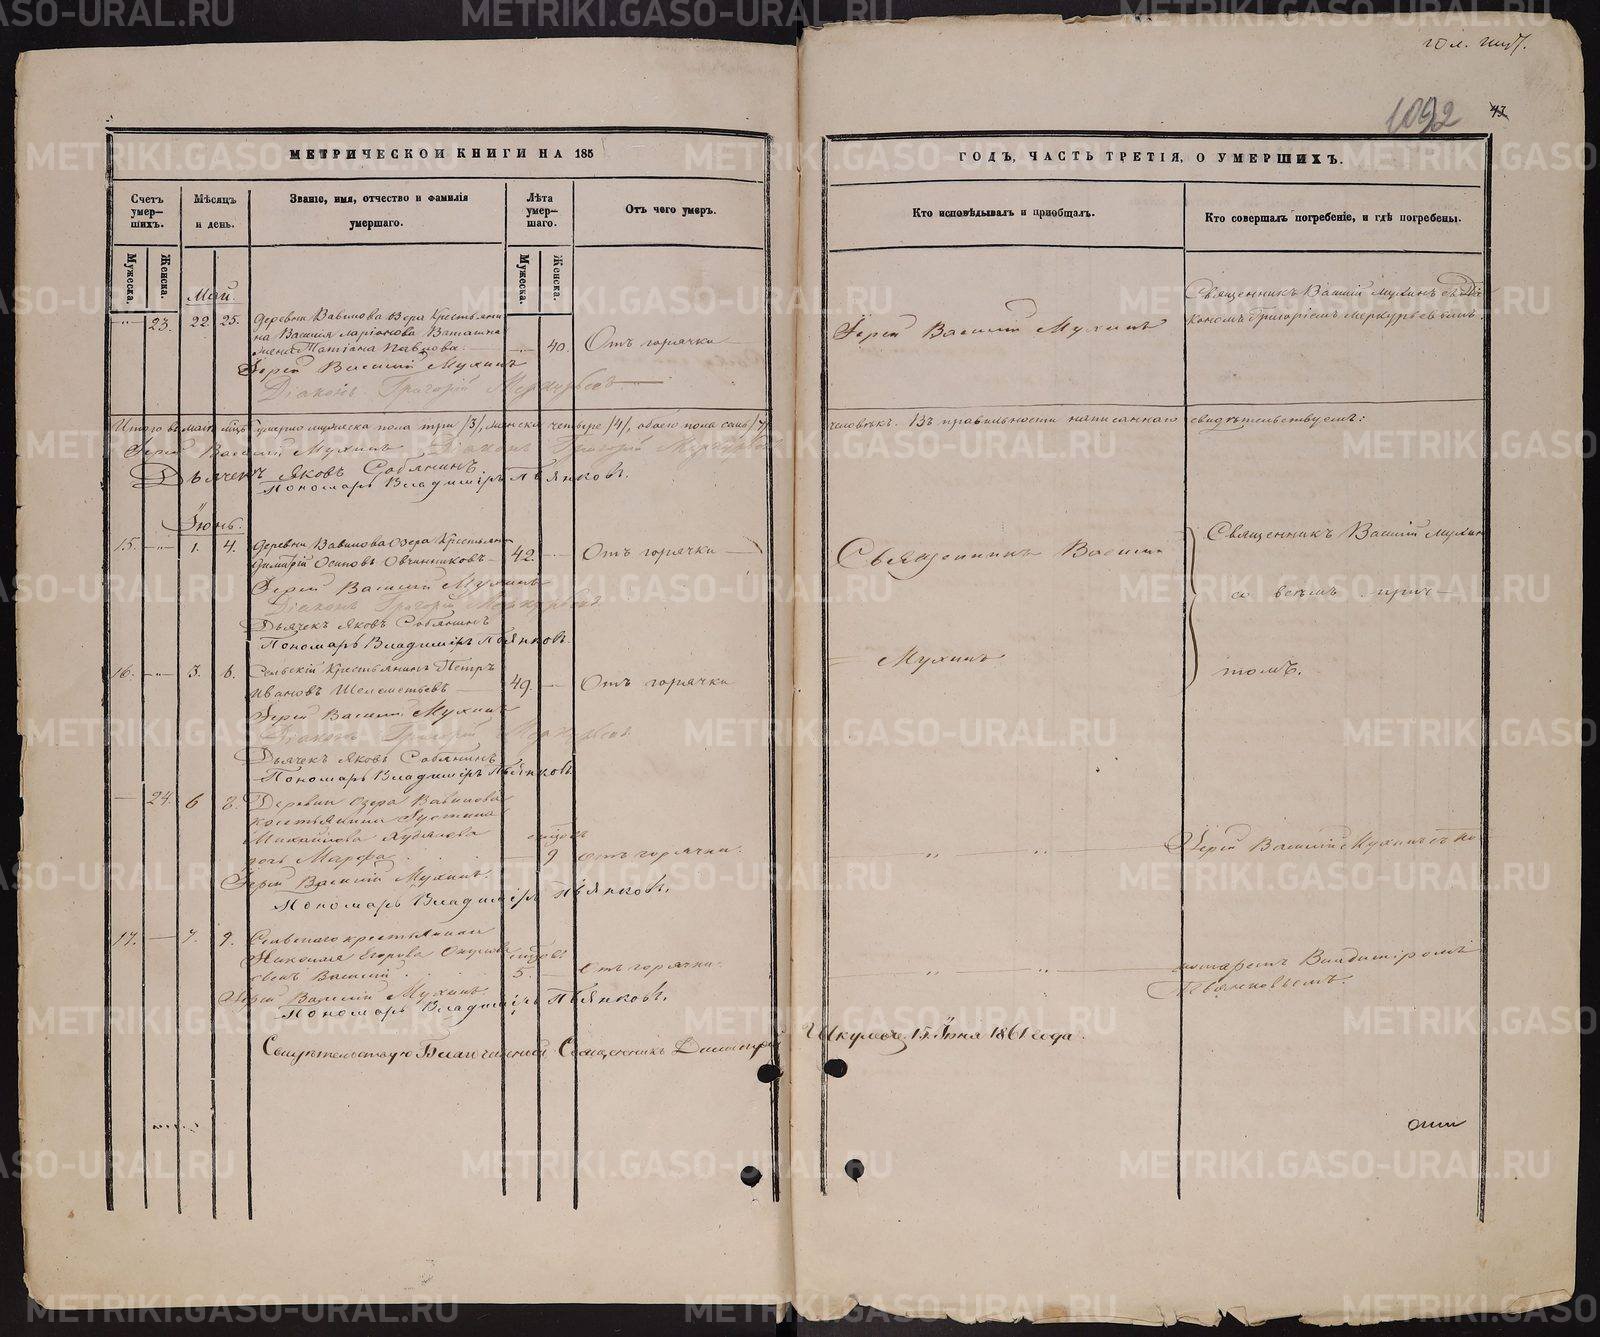 10 л. шт.
1092
43
МЕТРИЧЕСКОЙ КНИГИ НА 185
ГОДЪ, ЧАСТЬ ТРЕТІЯ, О УМЕРШИХЪ.
Счетъ умер–шихъ.
Мужеска.
Женска.
Мѣсяцъ и день.
Званіе, имя, отчество и фамилія умершаго.
Лѣта умер–шаго.
Мужеска.
Женска.
Отъ чего умеръ.
Кто исповѣдывалъ и пріобщалъ.
Кто совершалъ погребеніе, и гдѣ погребены.
Май.
23. 22. 25. Деревни Вавилова Озера Крестьяни
на Василія Ларіонова
жена Татіана Павлова. 40. Отъ горячки
Іерей Василій Мухинъ
Діаконъ Григорій Меркурьевъ
Іерей Василій Мухинъ
Священникъ Василій Мухинъ съ Діа
кономъ Григоріемъ Меркурьевымъ.
Итого въ маѣ мѣсяцѣ умерло мужеска пола три /3/, женска четыре /4/, обоего пола семь /7/
человѣкъ. Въ правильности написаннаго свидѣтельствуемъ:
Іерей Василій Мухинъ Діаконъ Григорій Меркурьевъ
Дьячекъ Яковъ Собянинъ
Пономарь Владиміръ Пьянковъ.
Іюнь.
15. 1. 4. Деревни Вавилова Озера Крестьянинъ
Осиповъ Овчинниковъ 42. Отъ горячки
Іерей Василій Мухинъ
Діаконъ Григорій Меркурьевъ
Дьячекъ Яковъ Собянинъ
Пономарь Владиміръ Пьянковъ.
16. 3. 6. Сельскій Крестьянинъ Петръ
Ивановъ 49. Отъ горячки
Іерей Василій Мухинъ
Діаконъ Григорій Меркурьевъ
Дьячекъ Яковъ Собянинъ
Пономарь Владиміръ Пьянковъ
Священникъ Василій
Мухинъ
Священникъ Василій Мухинъ
со всѣмъ прич–
томъ.
24. 6 8. Деревни Озера Вавилова
крестьянина
Михайлова Худякова
дочь Марфа. 9 отъ горячки.
Іерей Василій Мухинъ.
Пономарь Владиміръ Пьянковъ.
Іерей Василій Мухинъ съ по
17. 7. 9. Сельскаго крестьянина
Егорова
сынъ Василій. 5. отъ горячки.
Іерей Василій Мухинъ.
Пономарь Владиміръ Пьянковъ.
номаремъ Владиміромъ
Пьянковымъ.
Свидѣтельствую Благочинный Священникъ Димитрій
15. Іюня 1861 года.